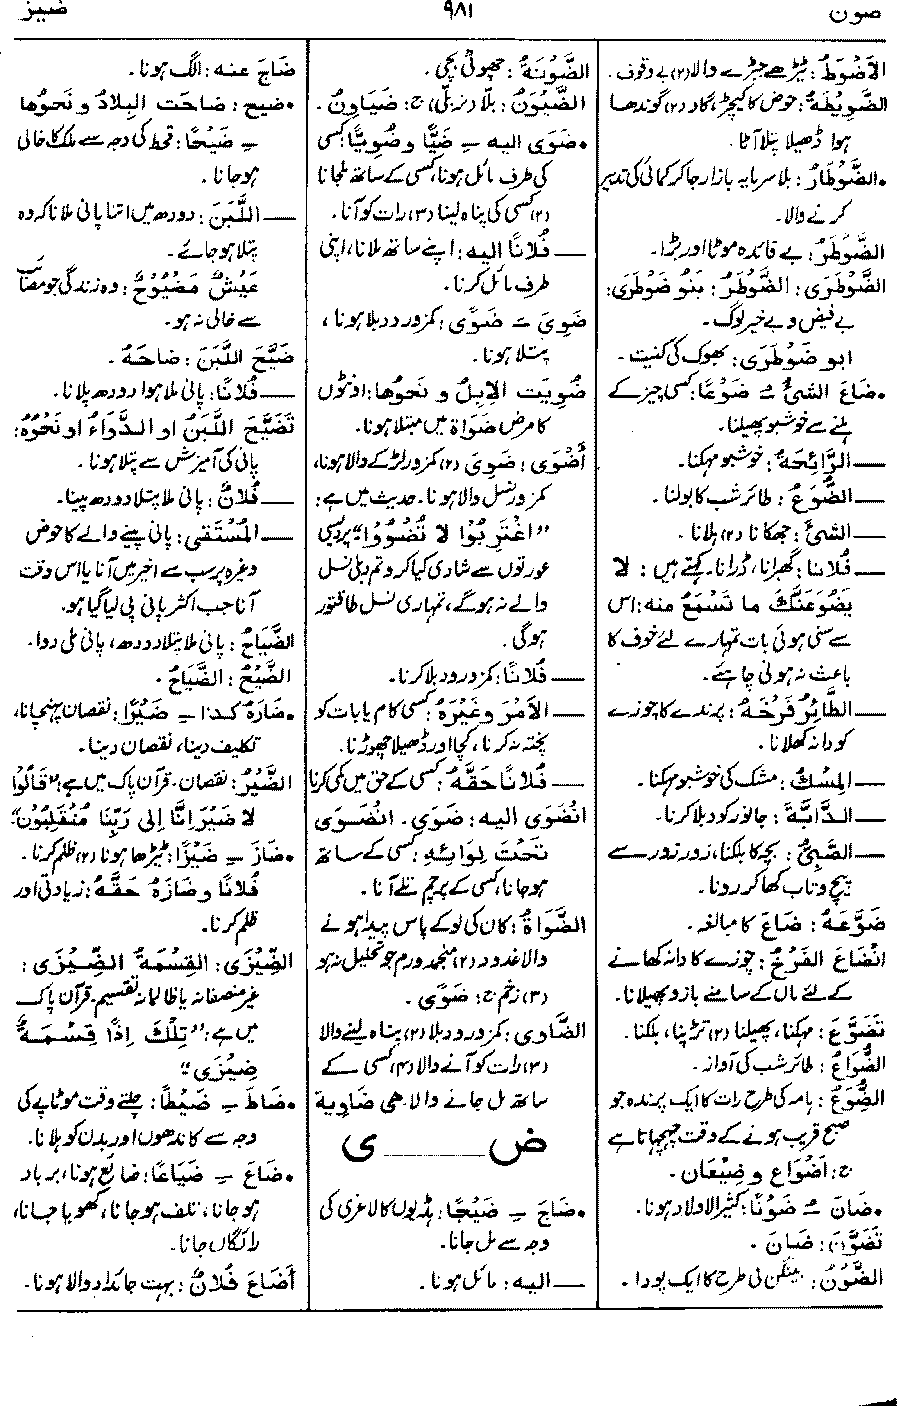 صون
۹۸۱
ضيز
الأَضْوَطُ: ٹیڑھے جبڑے والا (۲) بے وقوف.
الضَّوِيطَةُ: حوض کا کیچڑ، گاد (۲) گوندھا
ہوا ڈھیلا پتلا آٹا.
•الضَّوْطَارُ: بلا سرمایہ بازار جا کر کمائی کی تدبیر
کرنے والا.
الضَّوْطَرُ: بے فائدہ موٹا اور بڑا.
الضَّوْطَرَى: الضَّوْطَرُ: بَنُو ضَوْطَرَى:
بے فیض و بے خیر لوگ.
ابو ضَوْطَرَى: بھوک کی کنیت.
•ضَاعَ الشيُّ ـُ ضَوْعًا: کسی چیز کے
ہلنے سے خوشبو پھیلنا.
— الرَّائِحَةُ: خوشبو مہکنا.
— الضُّوَعُ: طائر شب کا بولنا.
— الشيَّ: جھکانا (۲) ہلانا.
— فُلَانًا: گھبرانا، ڈرانا. کہتے ہیں: لا
يَضُوعَنَّكَ ما تَسْمَعُ منه: اس
سے سنی ہوئی بات تمہارے لئے خوف کا
باعث نہ ہونی چاہیے.
— الطَّائِرُ فَرْخَهُ: پرندے کا چوزے
کو دانہ کھلانا.
— المِسْكُ: مشک کی خوشبو مہکنا.
— الدَّابَّةَ: جانور کو دبلا کرنا.
— الصَّبِيُّ: بچہ کا بلکنا، زور زور سے
پیچ و تاب کھا کر رونا.
ضَوَّعَهُ: ضَاعَ کا مبالغہ.
انْضَاعَ الفَرْخُ: چوزے کا دانہ کھانے
کے لئے ماں کے سامنے بازو پھیلانا.
تَضَوَّعَ: مہکنا، پھیلنا (۲) تڑپنا، بلکنا.
الضُّوَاعُ: طائر شب کی آواز.
الضُّوَعُ: ہامہ کی طرح رات کا ایک پرندہ جو
صبح قریب ہونے کے وقت چہچہاتا ہے
ج: أَضْوَاع و ضِيْعَان.
•ضَانَ ـُ ضَوْنًا: کثیر الاولاد ہونا.
تَضَوَّنَ: ضَانَ.
الضَّوْنُ: بینگن کی طرح کا ایک پودا.
الضَّوْنَةُ: چھوٹی بچی.
الضَّيْوَنُ: بلّا (نر بلی) ج: ضَيَاوِنُ.
•ضَوَى اليه ـِ ضَيًّا و ضُوِيًّا: کسی
کی طرف مائل ہونا، کسی کے ساتھ مل جانا
(۲) کسی کی پناہ لینا (۳) رات کو آنا.
— فُلَانًا اليه: اپنے ساتھ ملانا، اپنی
طرف مائل کرنا.
ضَوِيَ ـَ ضَوًى: کمزور و دبلا ہونا،
پتلا ہونا.
ضُوِيَت الإِبِلُ و نَحْوُهَا: اونٹوں
کا مرض ضَوَاة میں مبتلا ہونا.
أَضْوَى: ضَوِيَ (۲) کمزور لڑکے والا ہونا،
کمزور نسل والا ہونا. حدیث میں ہے:
"اغْتَرِبُوْا لَا تُضْوُوْا" پردیسی
عورتوں سے شادی کیا کرو تم دبلی نسل
والے نہ ہوگے، تمہاری نسل طاقتور
ہوگی.
— فُلَانًا: کمزور و دبلا کرنا.
— الأَمْرَ وغَيْرَهُ: کسی کام یا بات کو
پختہ نہ کرنا، کچا اور ڈھیلا چھوڑنا.
— فُلَانًا حَقَّهُ: کسی کے حق میں کمی کرنا
انْضَوَى اليه: ضَوَى. انْضَوَى
تَحْتَ لِوَائِهِ: کسی کے ساتھ
ہو جانا، کسی کے پرچم تلے آنا.
الضَّوَاةُ: کان کی لو کے پاس پیدا ہونے
والا غدود (۲) منجمد ورم جو تحلیل نہ ہو
(۳) زخم ج: ضَوًى.
الضَّاوِى: کمزور و دبلا (۲) پناہ لینے والا
(۳) رات کو آنے والا (۴) کسی کے
ساتھ مل جانے والا. هى ضَاوِيَة
ض ــــــ ی
•ضَاجَ ـِ ضَيْجًا: ہڈیوں کا لاغری کی
وجہ سے مل جانا.
— اليه: مائل ہونا.
ضَاجَ عنه: الگ ہونا.
•ضيح: ضاحَت البِلادُ و نَحْوُها
ـِ ضَيْحًا: قحط کی وجہ سے ملک کا خالی
ہو جانا.
— اللَّبَنَ: دودھ میں اتنا پانی ملانا کہ وہ
پتلا ہو جائے.
عَيْشٌ مَضْيُوحٌ: وہ زندگی جو مصائب
سے خالی نہ ہو.
ضَيَّحَ اللَّبَنَ: ضَاحَهُ.
— فُلَانًا: پانی ملا ہوا دودھ پلانا.
تَضَيَّحَ اللَّبَنُ او الدَّوَاءُ او نَحْوُهُ:
پانی کی آمیزش سے پتلا ہونا.
— فُلَانٌ: پانی ملا پتلا دودھ پینا.
— المُسْتَقِي: پانی پینے والے کا حوض
وغیرہ پر سب سے اخیر میں آنا یا اس وقت
آنا جب اکثر پانی پی لیا گیا ہو.
الضَّيَاحُ: پانی ملا پتلا دودھ، پانی ملی دوا.
الضَّيْحُ: الضَّيَاحُ.
•ضَارَهُ كذا ـِ ضَيْرًا: نقصان پہنچانا،
تکلیف دینا، نقصان دینا.
الضَّيْرُ: نقصان. قرآن پاک میں ہے: "قَالُوْا
لَا ضَيْرَ إِنَّا إِلَى رَبِّنَا مُنْقَلِبُوْنَ"
•ضَازَ ـِ ضَيْزًا: ٹیڑھا ہونا (۲) ظلم کرنا.
فُلَانًا و ضَازَهُ حَقَّهُ: زیادتی اور
ظلم کرنا.
الضِّيْزَى: القِسْمَةُ الضِّيْزَى:
غیر منصفانہ یا ظالمانہ تقسیم. قرآن پاک
میں ہے: "تِلْكَ إِذًا قِسْمَةٌ
ضِيْزَى"
•ضَاطَ ـِ ضَيْطًا: چلتے وقت موٹاپے کی
وجہ سے کاندھوں اور بدن کو ہلانا.
•ضَاعَ ـِ ضَيَاعًا: ضائع ہونا، برباد
ہو جانا، تلف ہو جانا، کھویا جانا،
رائگاں جانا.
أَضَاعَ فُلَانٌ: بہت جائداد والا ہونا.